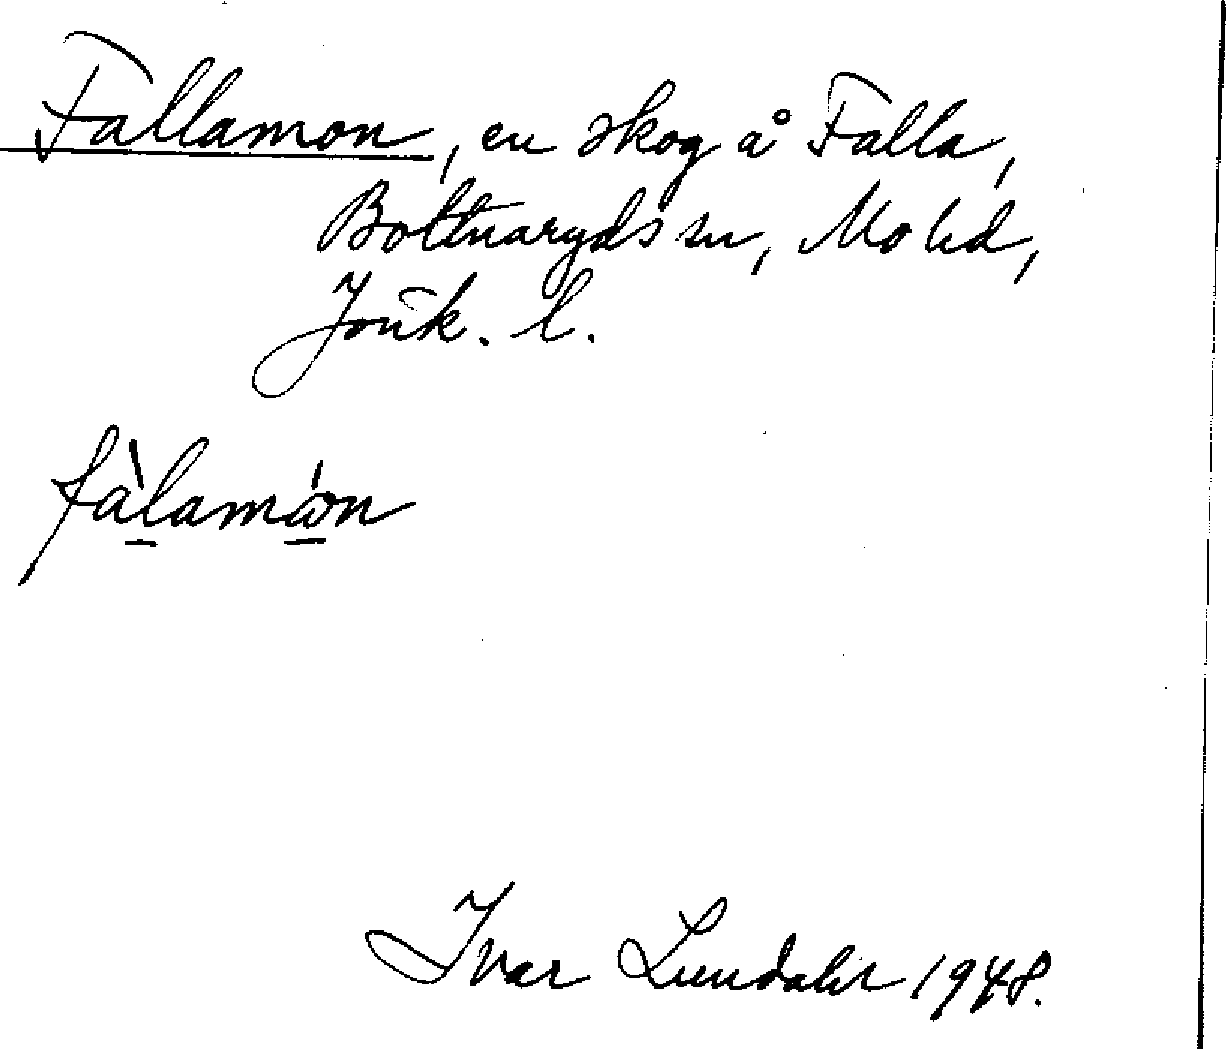 Fallamon, en skog å Falla,
Bottnaryds sn, Mo hd,
Jönk. l.
fàlamón
Ivar Lundahl 1948.